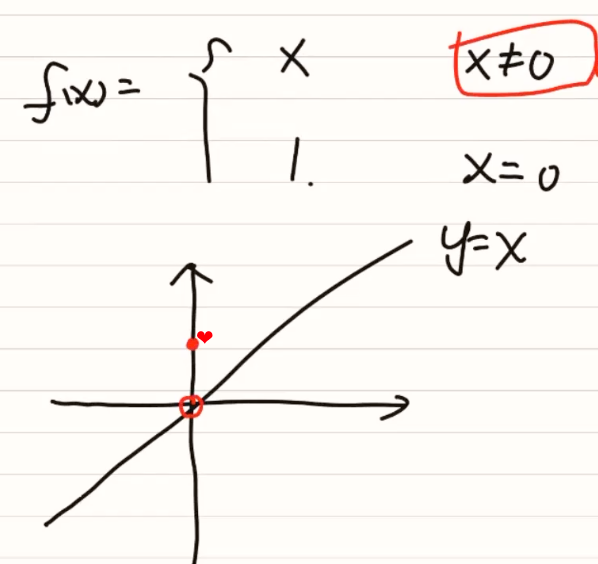 f(x) = { x x≠0
1. x=0
y=x